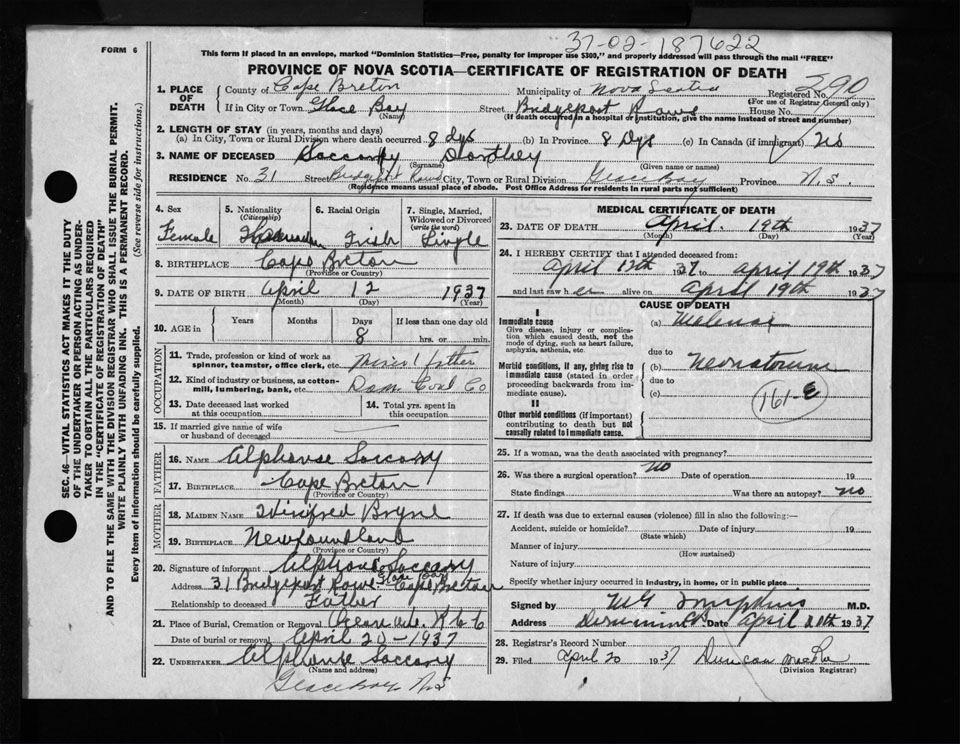 37-02-187622
FORM 6
This form if placed in an envelope, marked "Dominion Statistics—Free, penalty for improper use $300," and properly addressed will pass through the mail "FREE"
PROVINCE OF NOVA SCOTIA—CERTIFICATE OF REGISTRATION OF DEATH
1. PLACE OF DEATH
County of Cape Breton Municipality of Nova Scotia Registered No. 390
(For use of Registrar General only)
If in City or Town Glace Bay Street Bridgeport Rows House No.
(Name) (If death occurred in a hospital or institution, give the name instead of street and number)
2. LENGTH OF STAY (in years, months and days)
(a) In City, Town or Rural Division where death occurred 8 dys (b) In Province 8 Dys (c) In Canada (if immigrant)
3. NAME OF DECEASED Soccary Dorthey
(Surname) (Given name or names)
RESIDENCE No. 31 Street Bridgeport Rows City, Town or Rural Division Glace Bay Province N.S.
(Residence means usual place of abode. Post Office Address for residents in rural parts not sufficient)
4. Sex Female
5. Nationality (Citizenship)
6. Racial Origin Irish
7. Single, Married, Widowed or Divorced (write the word) Single
8. BIRTHPLACE Cape Breton
(Province or Country)
9. DATE OF BIRTH April 12 1937
(Month) (Day) (Year)
10. AGE in Years Months Days 8 If less than one day old hrs. or min.
OCCUPATION
11. Trade, profession or kind of work as spinner, teamster, office clerk, etc. father
12. Kind of industry or business, as cotton-mill, lumbering, bank, etc. Dom Coal Co
13. Date deceased last worked at this occupation
14. Total yrs. spent in this occupation
15. If married give name of wife or husband of deceased
FATHER
16. NAME Alphonse Soccary
17. BIRTHPLACE Cape Breton
(Province or Country)
MOTHER
18. MAIDEN NAME Winifred Bryne
19. BIRTHPLACE Newfoundland
(Province or Country)
20. Signature of informant Alphonse Soccary
Address 31 Bridgeport Rows Glace Bay Cape Breton
Relationship to deceased Father
21. Place of Burial, Cremation or Removal
Date of burial or removal April 20-1937
22. UNDERTAKER Alphonse Soccary
(Name and address)
Glace Bay N.S
MEDICAL CERTIFICATE OF DEATH
23. DATE OF DEATH April. 19th 1937
(Month) (Day) (Year)
24. I HEREBY CERTIFY that I attended deceased from:
April 17th 1937 to April 19th 1937
and last saw her alive on April 19th 1937
CAUSE OF DEATH
I
Immediate cause
Give disease, injury or complication which caused death, not the mode of dying, such as heart failure, asphyxia, asthenia, etc.
(a) Melenae
due to
Morbid conditions, if any, giving rise to immediate cause (stated in order proceeding backwards from immediate cause).
(b) Neonatorum
due to
(c)
161-E
II
Other morbid conditions (if important) contributing to death but not causally related to immediate cause.
25. If a woman, was the death associated with pregnancy?
26. Was there a surgical operation? no Date of operation 19
State findings Was there an autopsy? no
27. If death was due to external causes (violence) fill in also the following:—
Accident, suicide or homicide? Date of injury 19
(State which)
Manner of injury
(How sustained)
Nature of injury
Specify whether injury occurred in industry, in home, or in public place
Signed by M.D.
Address Dominion C.B. Date April 20th 1937
28. Registrar's Record Number
29. Filed April 20 1937 Duncan
(Division Registrar)
SEC. 46—VITAL STATISTICS ACT MAKES IT THE DUTY
OF THE UNDERTAKER OR PERSON ACTING AS UNDER-
TAKER TO OBTAIN ALL THE PARTICULARS REQUIRED
IN THE "CERTIFICATE OF REGISTRATION OF DEATH"
AND TO FILE THE SAME WITH THE DIVISION REGISTRAR WHO SHALL ISSUE THE BURIAL PERMIT.
WRITE PLAINLY WITH UNFADING INK. THIS IS A PERMANENT RECORD.
Every item of information should be carefully supplied. (See reverse side for instructions.)